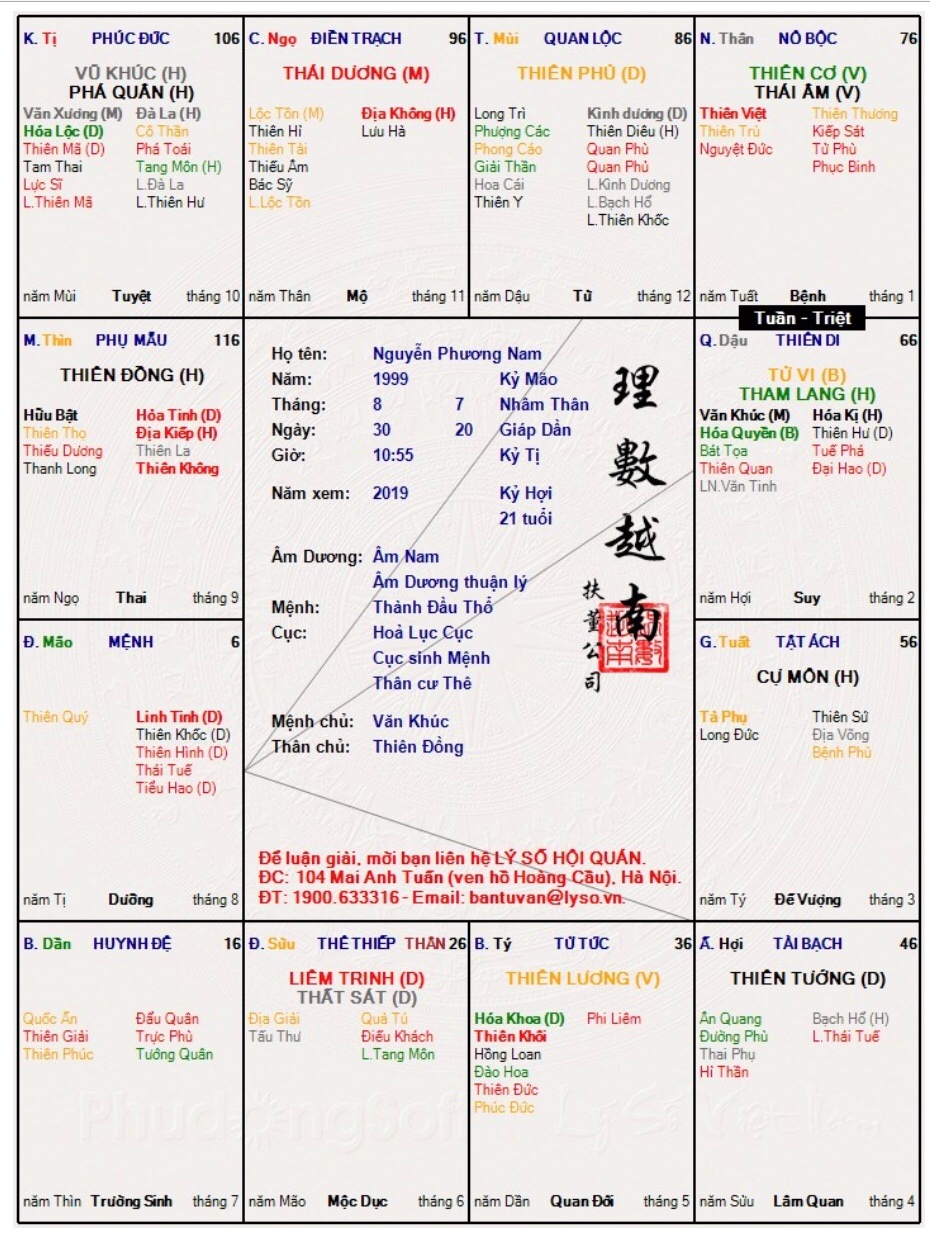 K. Tị PHÚC ĐỨC 106
VŨ KHÚC (H)
PHÁ QUÂN (H)
Văn Xương (M) Đà La (H)
Hóa Lộc (D) Cô Thần
Thiên Mã (D) Phá Toái
Tam Thai Tang Môn (H)
Lực Sĩ L.Đà La
L.Thiên Mã L.Thiên Hư
năm Mùi Tuyệt tháng 10
C. Ngọ ĐIỀN TRẠCH 96
THÁI DƯƠNG (M)
Lộc Tồn (M) Địa Không (H)
Thiên Hỉ Lưu Hà
Thiên Tài
Thiếu Âm
Bác Sỹ
L.Lộc Tồn
năm Thân Mộ tháng 11
T. Mùi QUAN LỘC 86
THIÊN PHỦ (D)
Long Trì Kình dương (D)
Phượng Các Thiên Diêu (H)
Phong Cáo Quan Phù
Giải Thần Quan Phủ
Hoa Cái L.Kình Dương
Thiên Y L.Bạch Hổ
L.Thiên Khốc
năm Dậu Tử tháng 12
N. Thân NÔ BỘC 76
THIÊN CƠ (V)
THÁI ÂM (V)
Thiên Việt Thiên Thương
Thiên Trù Kiếp Sát
Nguyệt Đức Tử Phù
Phục Binh
năm Tuất Bệnh tháng 1
Tuần - Triệt
M. Thìn PHỤ MẪU 116
THIÊN ĐỒNG (H)
Hữu Bật Hỏa Tinh (D)
Thiên Thọ Địa Kiếp (H)
Thiếu Dương Thiên La
Thanh Long Thiên Không
năm Ngọ Thai tháng 9
Họ tên: Nguyễn Phương Nam
Năm: 1999 Kỷ Mão
Tháng: 8 7 Nhâm Thân
Ngày: 30 20 Giáp Dần
Giờ: 10:55 Kỷ Tị
Năm xem: 2019 Kỷ Hợi
21 tuổi
Âm Dương: Âm Nam
Âm Dương thuận lý
Mệnh: Thành Đầu Thổ
Cục: Hoả Lục Cục
Cục sinh Mệnh
Thân cư Thê
Mệnh chủ: Văn Khúc
Thân chủ: Thiên Đồng
理數越南
扶董公司
Để luận giải, mời bạn liên hệ LÝ SỐ HỘI QUÁN.
ĐC: 104 Mai Anh Tuấn (ven hồ Hoàng Cầu), Hà Nội.
ĐT: 1900.633316 - Email: bantuvan@lyso.vn.
Q. Dậu THIÊN DI 66
TỬ VI (B)
THAM LANG (H)
Văn Khúc (M) Hóa Kị (H)
Hóa Quyền (B) Thiên Hư (D)
Bát Tọa Tuế Phá
Thiên Quan Đại Hao (D)
LN.Văn Tinh
năm Hợi Suy tháng 2
Đ. Mão MỆNH 6
Thiên Quý Linh Tinh (D)
Thiên Khốc (D)
Thiên Hình (D)
Thái Tuế
Tiểu Hao (D)
năm Tị Dưỡng tháng 8
G. Tuất TẬT ÁCH 56
CỰ MÔN (H)
Tả Phụ Thiên Sứ
Long Đức Địa Võng
Bệnh Phù
năm Tý Đế Vượng tháng 3
B. Dần HUYNH ĐỆ 16
Quốc Ấn Đẩu Quân
Thiên Giải Trực Phù
Thiên Phúc Tướng Quân
năm Thìn Trường Sinh tháng 7
Đ. Sửu THÊ THIẾP THÂN 26
LIÊM TRINH (D)
THẤT SÁT (D)
Địa Giải Quả Tú
Tấu Thư Điếu Khách
L.Tang Môn
năm Mão Mộc Dục tháng 6
B. Tý TỬ TỨC 36
THIÊN LƯƠNG (V)
Hóa Khoa (D) Phi Liêm
Thiên Khôi
Hồng Loan
Đào Hoa
Thiên Đức
Phúc Đức
năm Dần Quan Đới tháng 5
Ấ. Hợi TÀI BẠCH 46
THIÊN TƯỚNG (D)
Ân Quang Bạch Hổ (H)
Đường Phù L.Thái Tuế
Thai Phụ
Hỉ Thần
năm Sửu Lâm Quan tháng 4